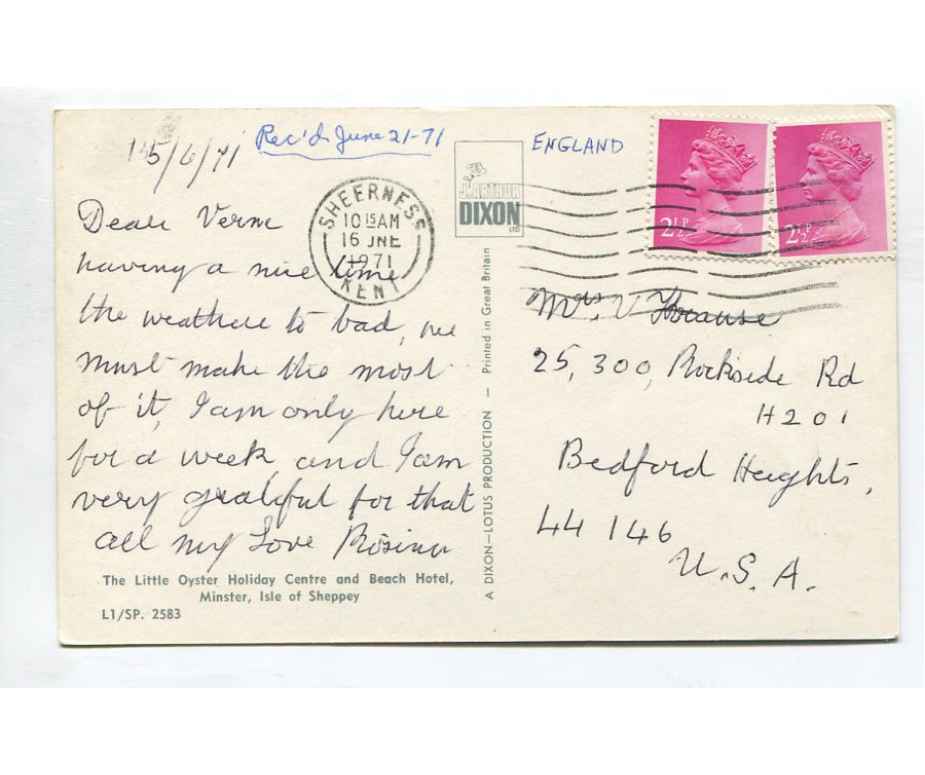 15/6/71
Rec'd June 21-71
ENGLAND
SHEERNESS
10 15 AM
16 JNE
1971
KENT
J. ARTHUR
DIXON
Ltd
2½P
2½P
Dear Verne
having a nice time
the weather to bad, we
must make the most
of it, I am only here
for a week, and I am
very grateful for that
all my Love Rosina
The Little Oyster Holiday Centre and Beach Hotel,
Minster, Isle of Sheppey
L1/SP. 2583
A DIXON—LOTUS PRODUCTION — Printed in Great Britain
Mrs. V Krause
25,300, Rockside Rd
H201
Bedford Heights,
44146
U.S.A.